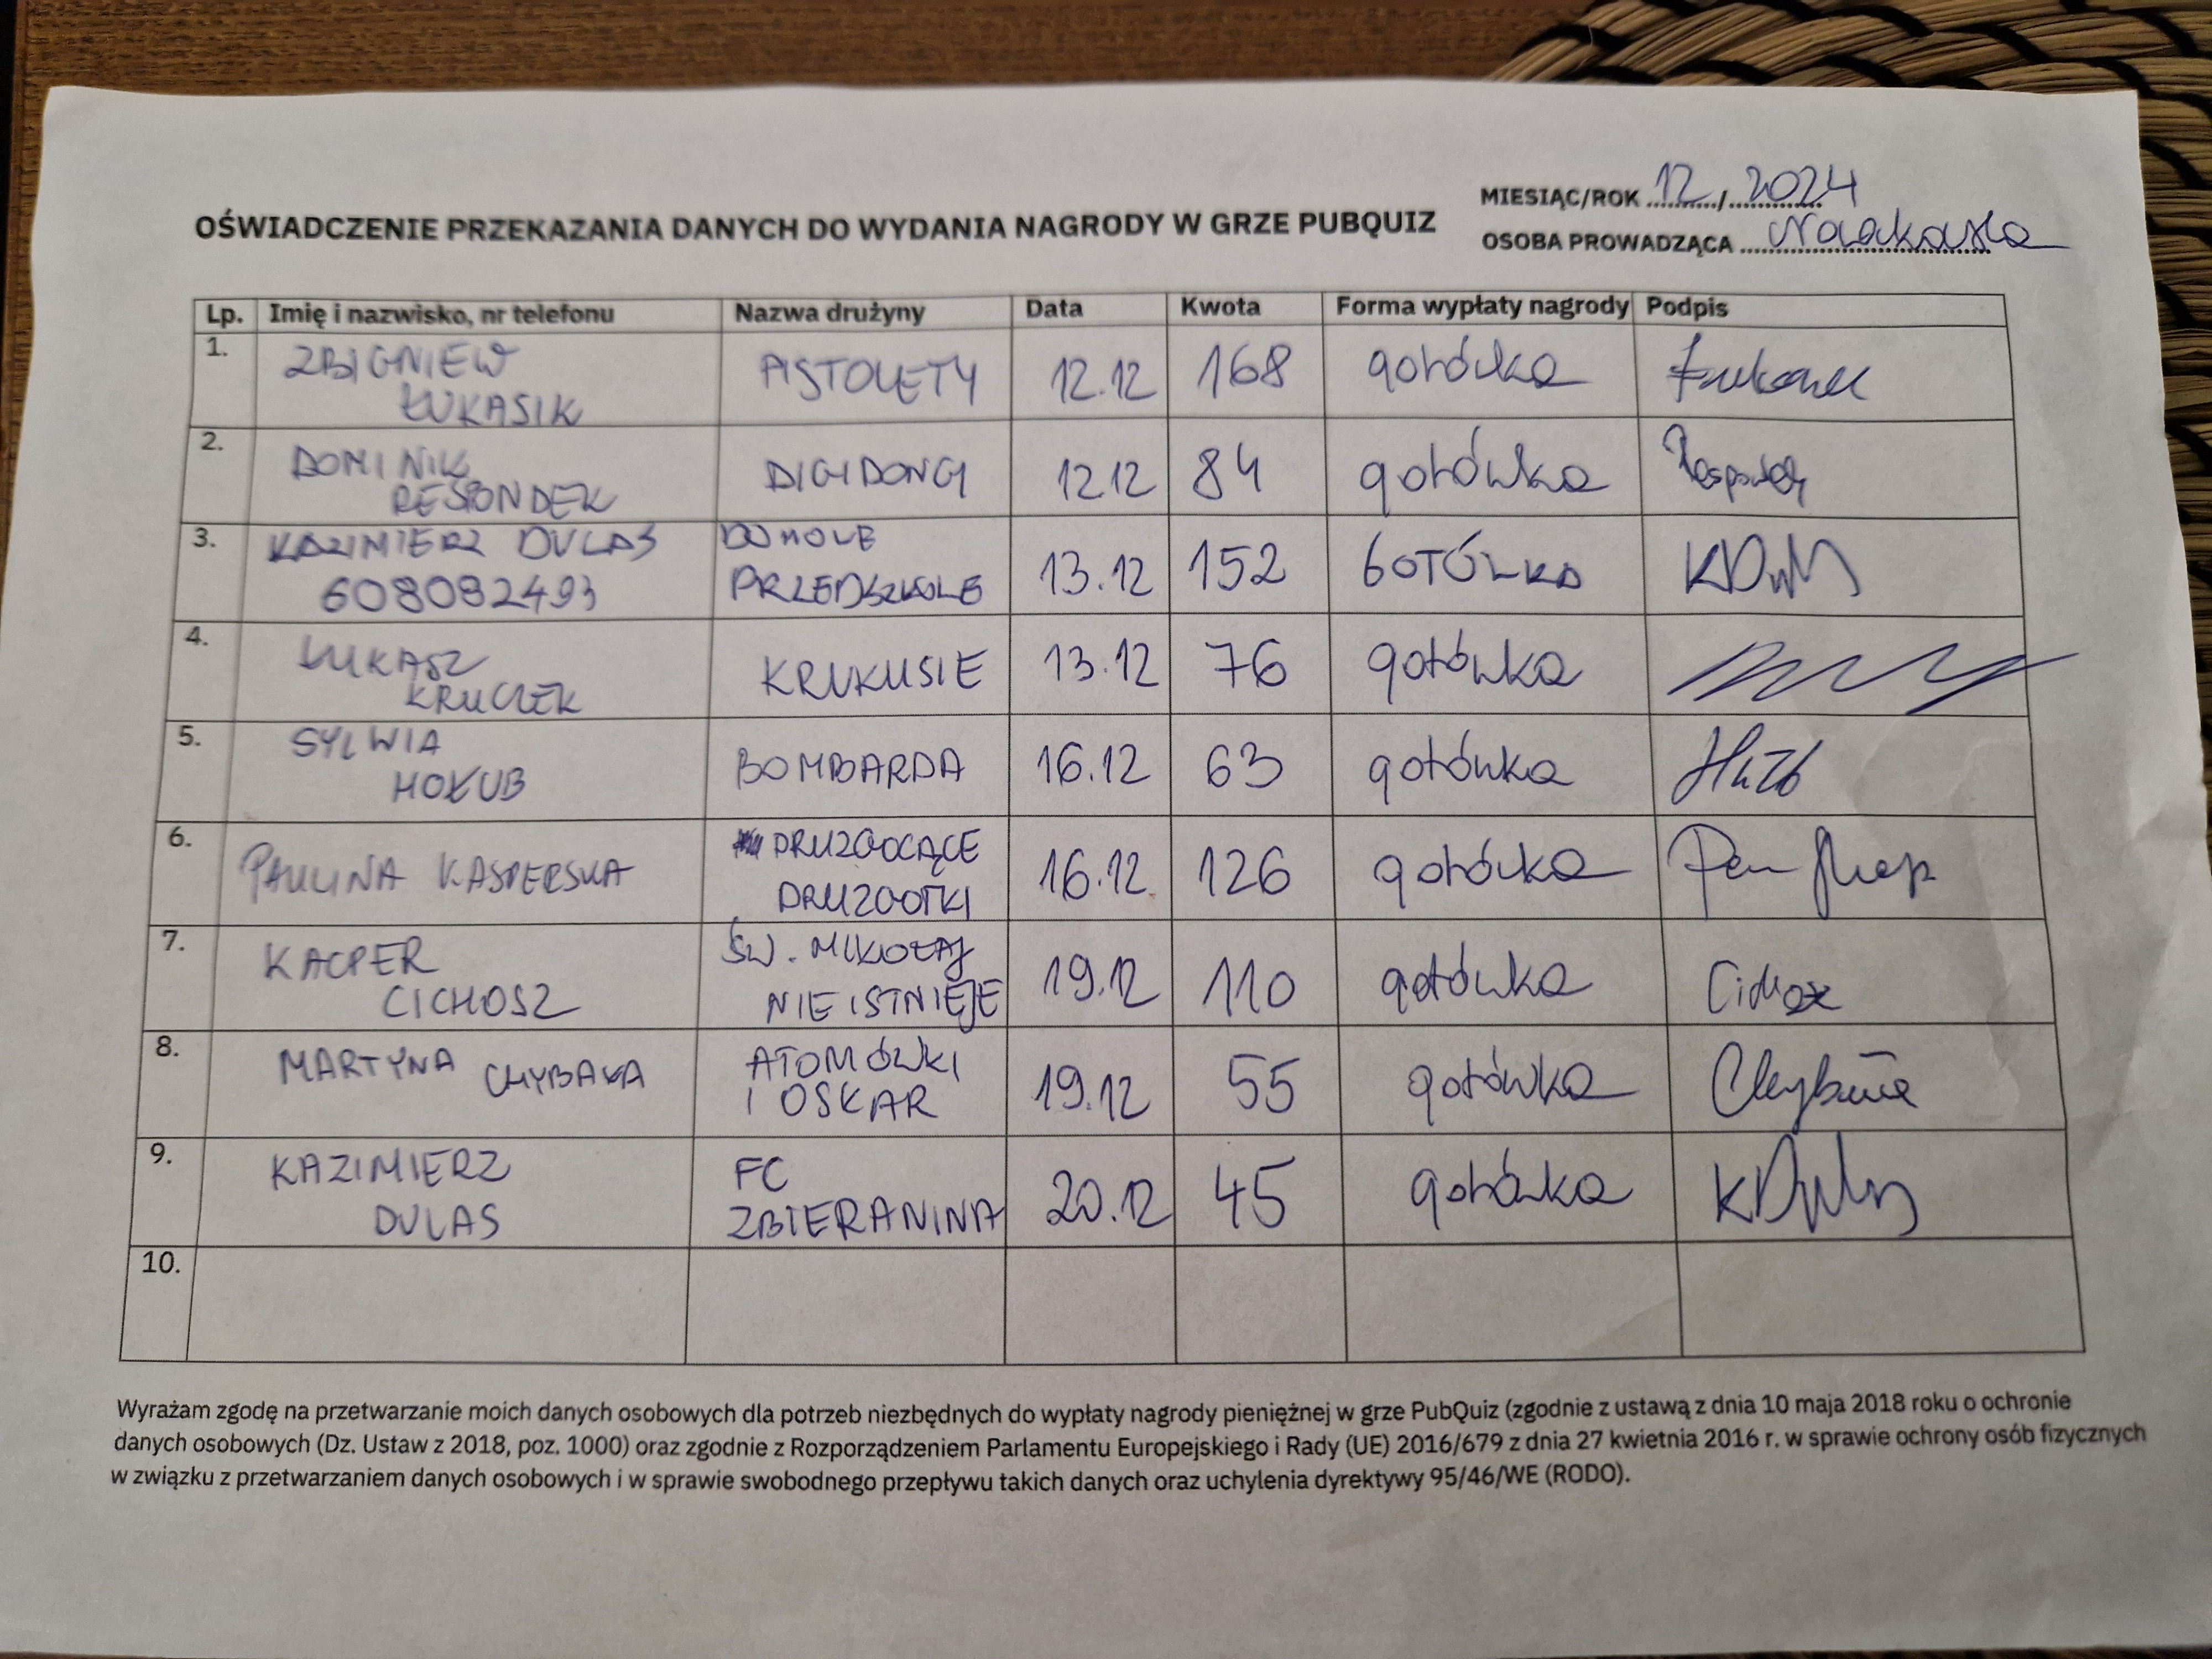 MIESIĄC/ROK 12 / 2024
OŚWIADCZENIE PRZEKAZANIA DANYCH DO WYDANIA NAGRODY W GRZE PUBQUIZ
OSOBA PROWADZĄCA
Lp. Imię i nazwisko, nr telefonu Nazwa drużyny Data Kwota Forma wypłaty nagrody Podpis
1. ZBIGNIEW ŁUKASIK PISTOLETY 12.12 168 gotówka
2. DOMINIK RESPONDEK DIGIDONGI 12.12 84 gotówka
3. KAZIMIERZ DULAS 608082493 PRZEDSZKOLE 13.12 152 GOTÓWKA
4. ŁUKASZ KRUCZEK KRUKUSIE 13.12 76 gotówka
5. SYLWIA HOŁUB BOMBARDA 16.12 63 gotówka
6. PAULINA KASPERSKA DRUZGOCĄCE DRUZGOTKI 16.12 126 gotówka
7. KACPER CICHOSZ ŚW. MIKOŁAJ NIE ISTNIEJE 19.12 110 gotówka Cichosz
8. MARTYNA ATOMÓWKI I OSKAR 19.12 55 gotówka
9. KAZIMIERZ DULAS FC ZBIERANINA 20.12 45 gotówka
10.
Wyrażam zgodę na przetwarzanie moich danych osobowych dla potrzeb niezbędnych do wypłaty nagrody pieniężnej w grze PubQuiz (zgodnie z ustawą z dnia 10 maja 2018 roku o ochronie
danych osobowych (Dz. Ustaw z 2018, poz. 1000) oraz zgodnie z Rozporządzeniem Parlamentu Europejskiego i Rady (UE) 2016/679 z dnia 27 kwietnia 2016 r. w sprawie ochrony osób fizycznych
w związku z przetwarzaniem danych osobowych i w sprawie swobodnego przepływu takich danych oraz uchylenia dyrektywy 95/46/WE (RODO).